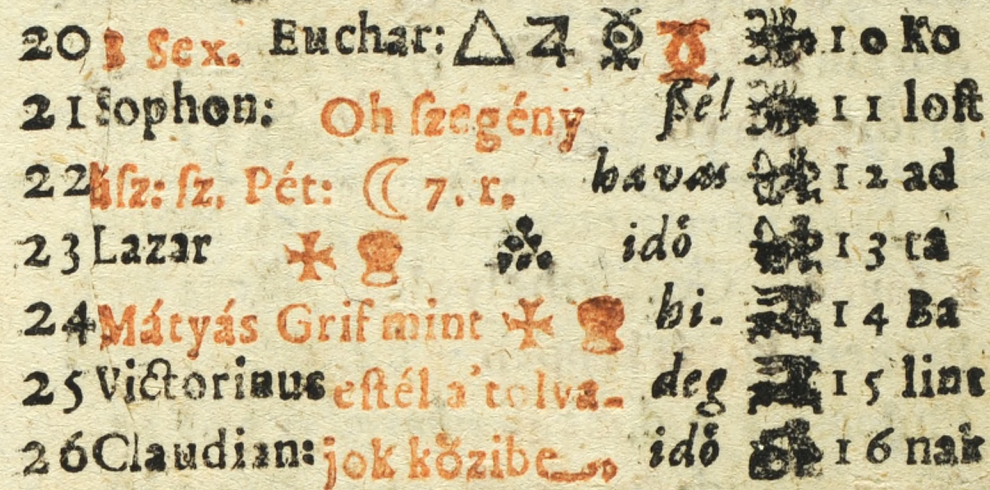 20 B Sex. Euchar: △ ♃ ☿ ♉ 10 Ko
21 Sophon: Oh ſzegény ſzél 11 loſt
22 úſz: ſz. Pét: ☾ 7. r. havas 12 ad
23 Lazar ✠ idő 13 ta
24 Mátyás Grif mint ✠ hi- 14 Ba
25 Victorinus eſtél a' tolva- deg 15 lint
26 Claudian: jok kőzibe idő 16 nak